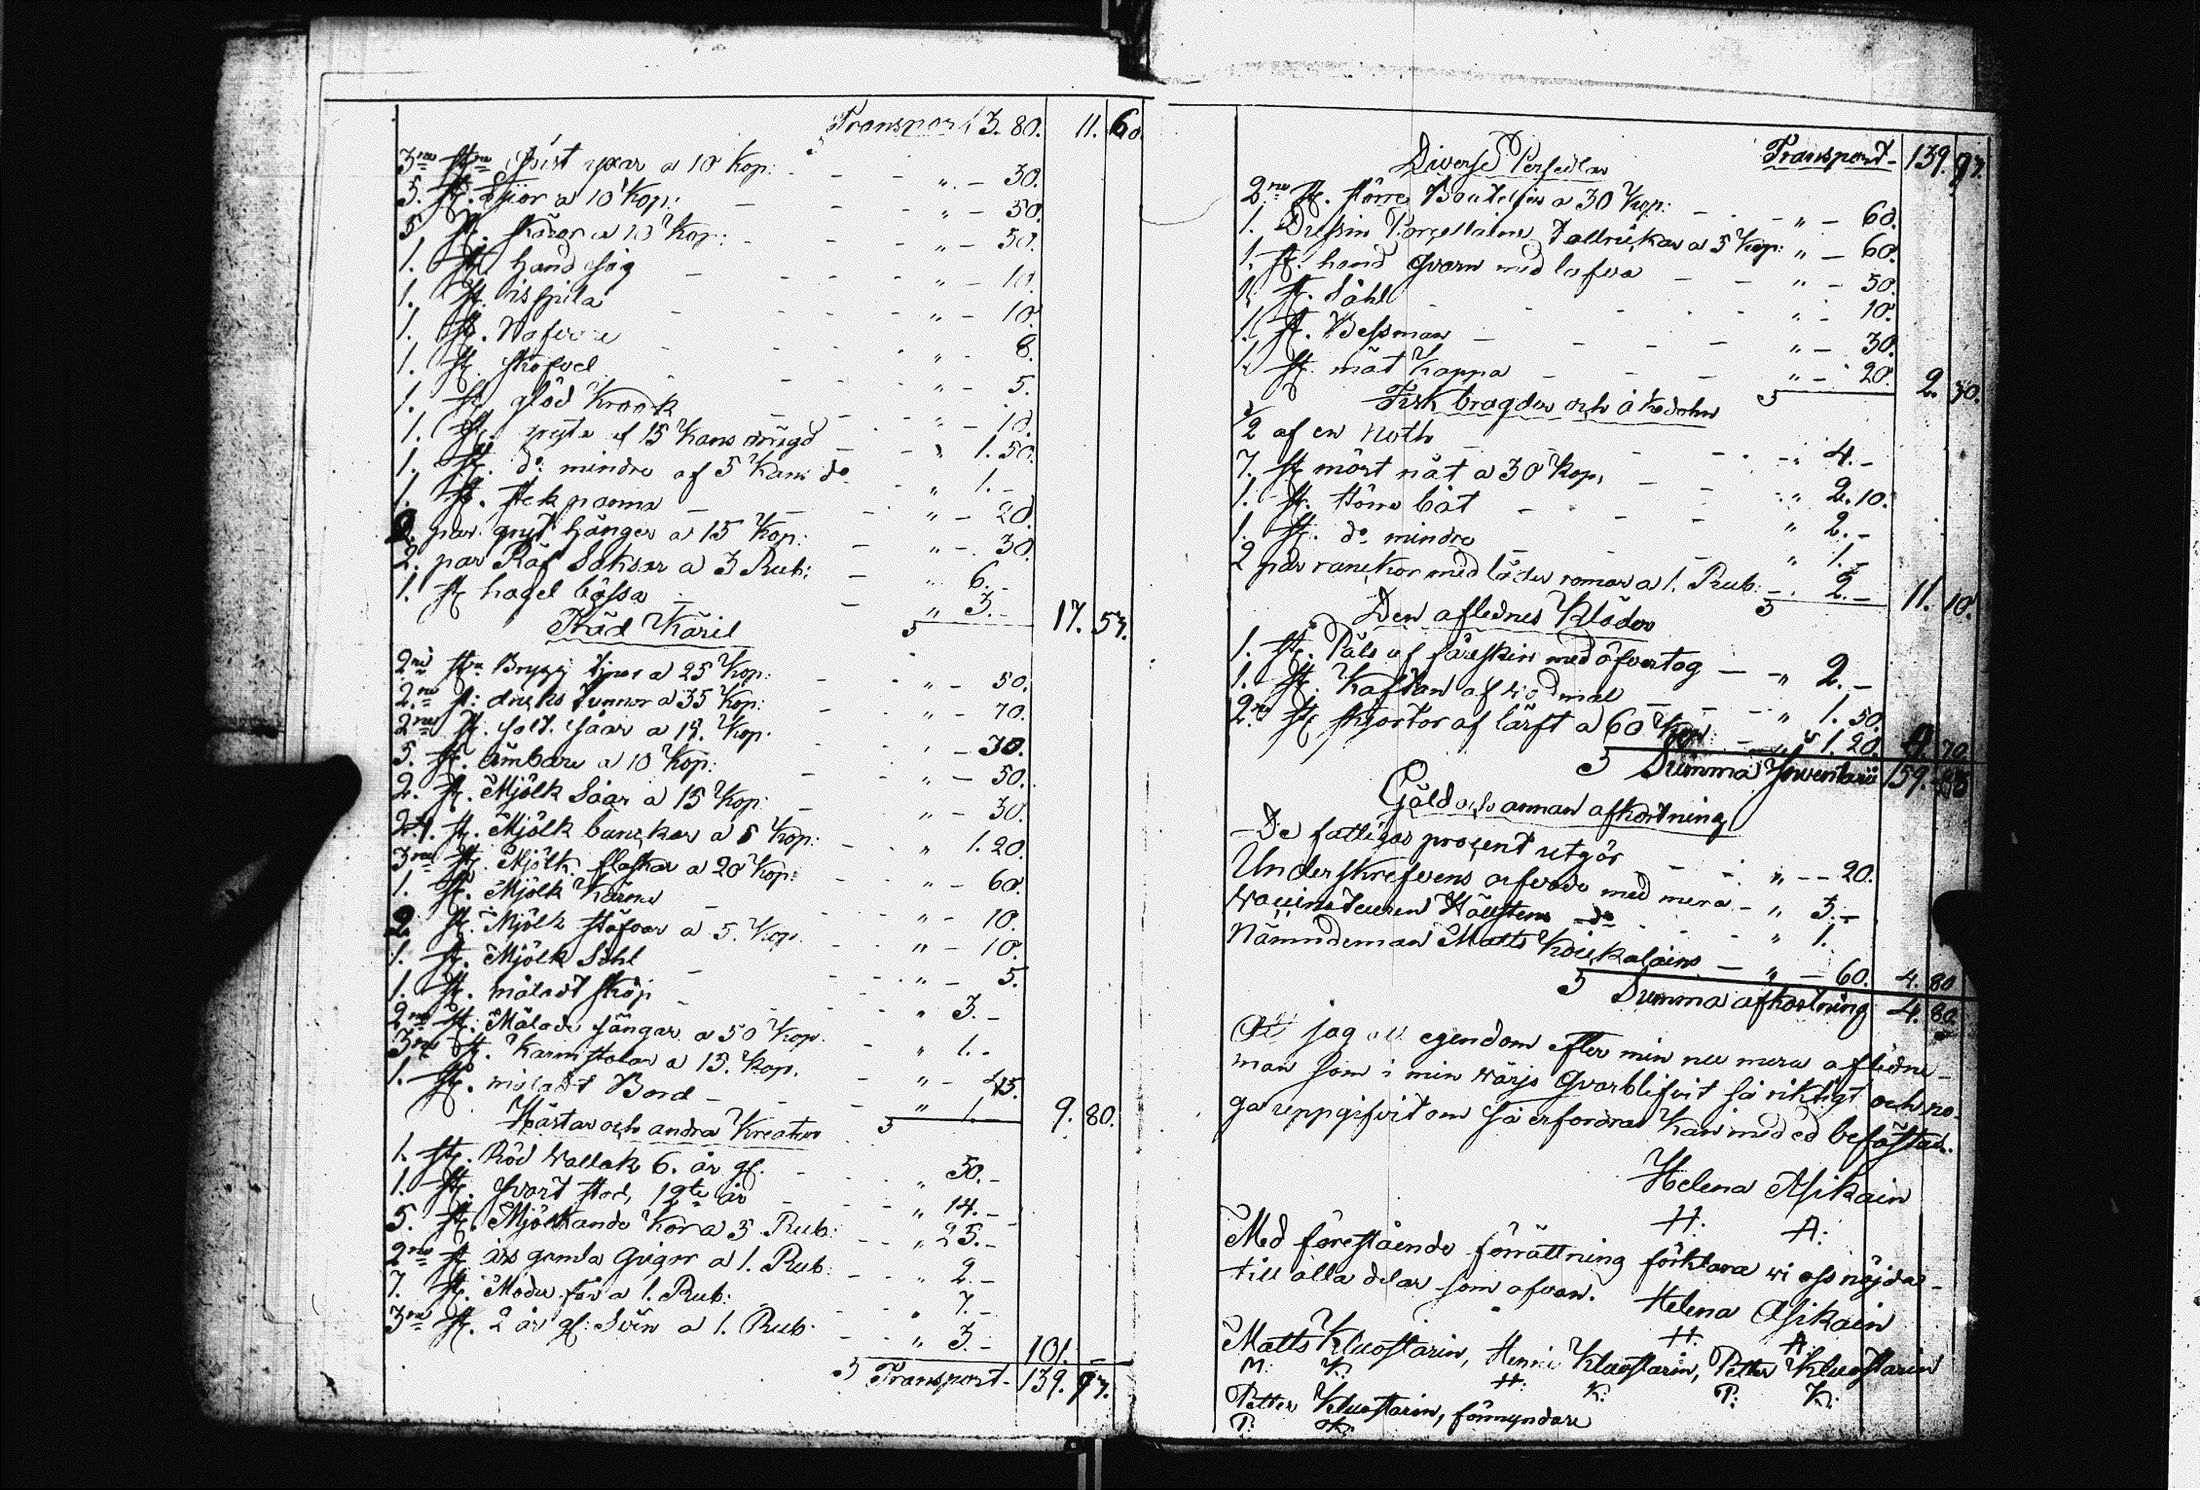 Transport 3. 80. 11. 60.
3ne st: qvist yxar a 10 Kop: " — 30.
5. st. Lijor a 10 Kop: " — 50.
5 st. skäror a 10 Kop: " — 50.
1. st. hand såg " — 10.
1. st. is spita " — 10.
1. st. Nafvare " — 8.
1. st. skofvel " — 5.
1. st. glöd Kraak " — 10.
1. st. gryta af 15 Kans rimgd " 1. 50.
1. st. do mindre af 5 Kans do " 1. —
1. st. stek panna " — 20.
2. par gryt hänger a 15 Kop: " — 30.
2. par Räf Saksar a 3 Rub: " 6. —
1. st hagel bössa " 3. — 17. 57.
Träd Käril
2ne st: Brygg tjnar a 25 Kop: " — 50.
2ne st: dricks tunnor a 35 Kop: " — 70.
2ne st. salt såar a 15. Kop. " — 30.
5. st. ämbare a 10 Kop: " — 50.
2. st. Mjölk Såar a 15 Kop: " — 30.
24. st. Mjölk bunckar a 5 Kop: " 1. 20.
3ne st. Mjölk flaskor a 20 Kop: " — 60.
1. st. Mjölk Kärna " — 10.
2 st. Mjölk stäfvor a 5. Kop. " — 10.
1. st. Mjölk Sihl " — 5.
1. st. måladt skåp " 3. —
2ne st. Målade sängar a 50 Kop. " 1. —
3ne st. Karmstolar a 15. Kop. " — 45.
1. st. måladt Bord " 1. 9. 80.
Hästar och andra Kreatur
1. st. Röd Wallak 6. år gl. " 50. —
1. st. svart stod, 12te år " 14. —
5. st. Mjölkande Kor a 5 Rub: " 25. —
2ne st. års gamla qvigor a 1. Rub. " 2. —
7. st. Moder får a 1. Rub: " 7. —
3ne st. 2 år gl: Svin a 1. Rub. " 3. — 101. —
Transport — 139. 97.
Diverse Persedlar Transport — 139. 97.
2ne st. större Bouteljer a 30 Kop: " — 60.
1. Dussin Porcellaine Tallrickar a 5 Kop: " — 60.
1. st. hand qvarn med lafva " — 50.
1. st. Såhl " — 10.
1. st. Bessman " — 30.
1. st. mät Kappa " — 20. 2. 30.
Fisk bragder och åkedohn
1/2 af en Noth " 4. —
7. st mört nät a 30 Kop. " 2. 10.
1. st. större båt " 2. —
1. st. do mindre " 1. —
2 par ranckor med läder romar a 1. Rub — 2. — 11. 10.
Den aflednes Kläder
1. st. Päls af fårskin med öfvertag — " 2. —
1. st. Kaftan af wadmal " 1. 50.
2ne st skjortor af lärft a 60 Kop: " 1. 20. 4. 70.
Summa Inventarii 159.
Gäld och annan afkortning
De fattigas procent utgör " — 20.
Underskrefvens arfvode med mera — " 3. —
Häusteus do " 1.
Nämndeman Matts Koickalains — " — 60. 4. 80
Summa afkortning 4. 80.
At jag all egendom efter min nu mera aflidne
man som i min wärjo qvarblifvit så riktigt och no-
ga uppgifvit om så erfordras Kan med ed befästad.
Helena Asikain
H: A:
Med förestående förrättning förklara wi oss nöjda
till alla delar som ofvan. Helena Asikain
H: A:
Matts Kluostarin, Henric Kluostarin, Petter Kluostarin
M: K: H: K: P: K:
Petter Kluostarin, förmyndare
P: K: